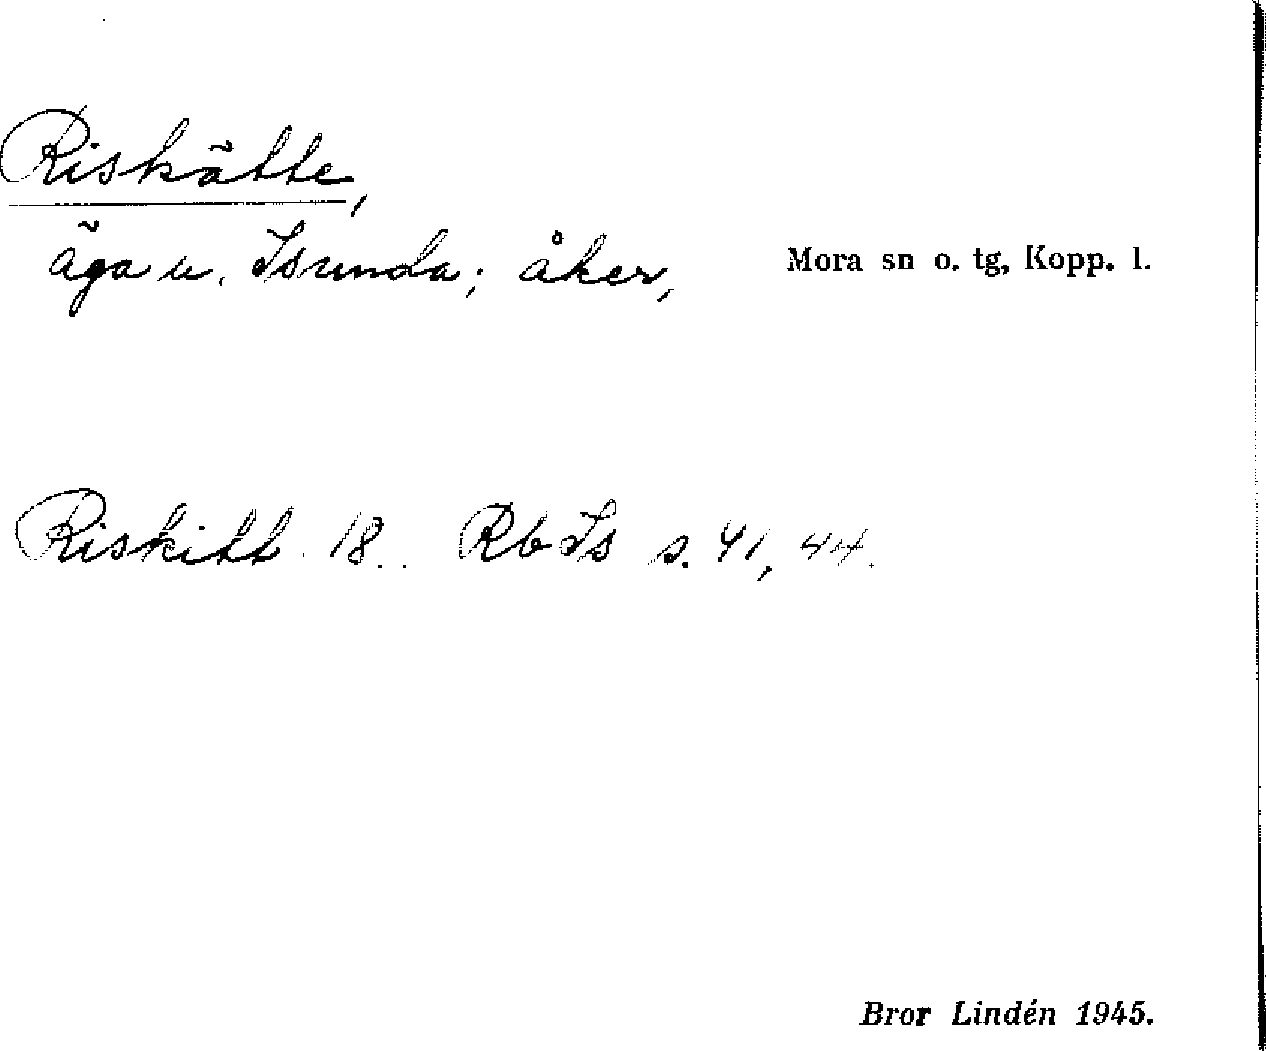 Riskätte,
äga u. Isunda; åker, Mora sn o. tg, Kopp. l.
Riskitt 18. Rb Is s. 41, 44.
Bror Lindén 1945.